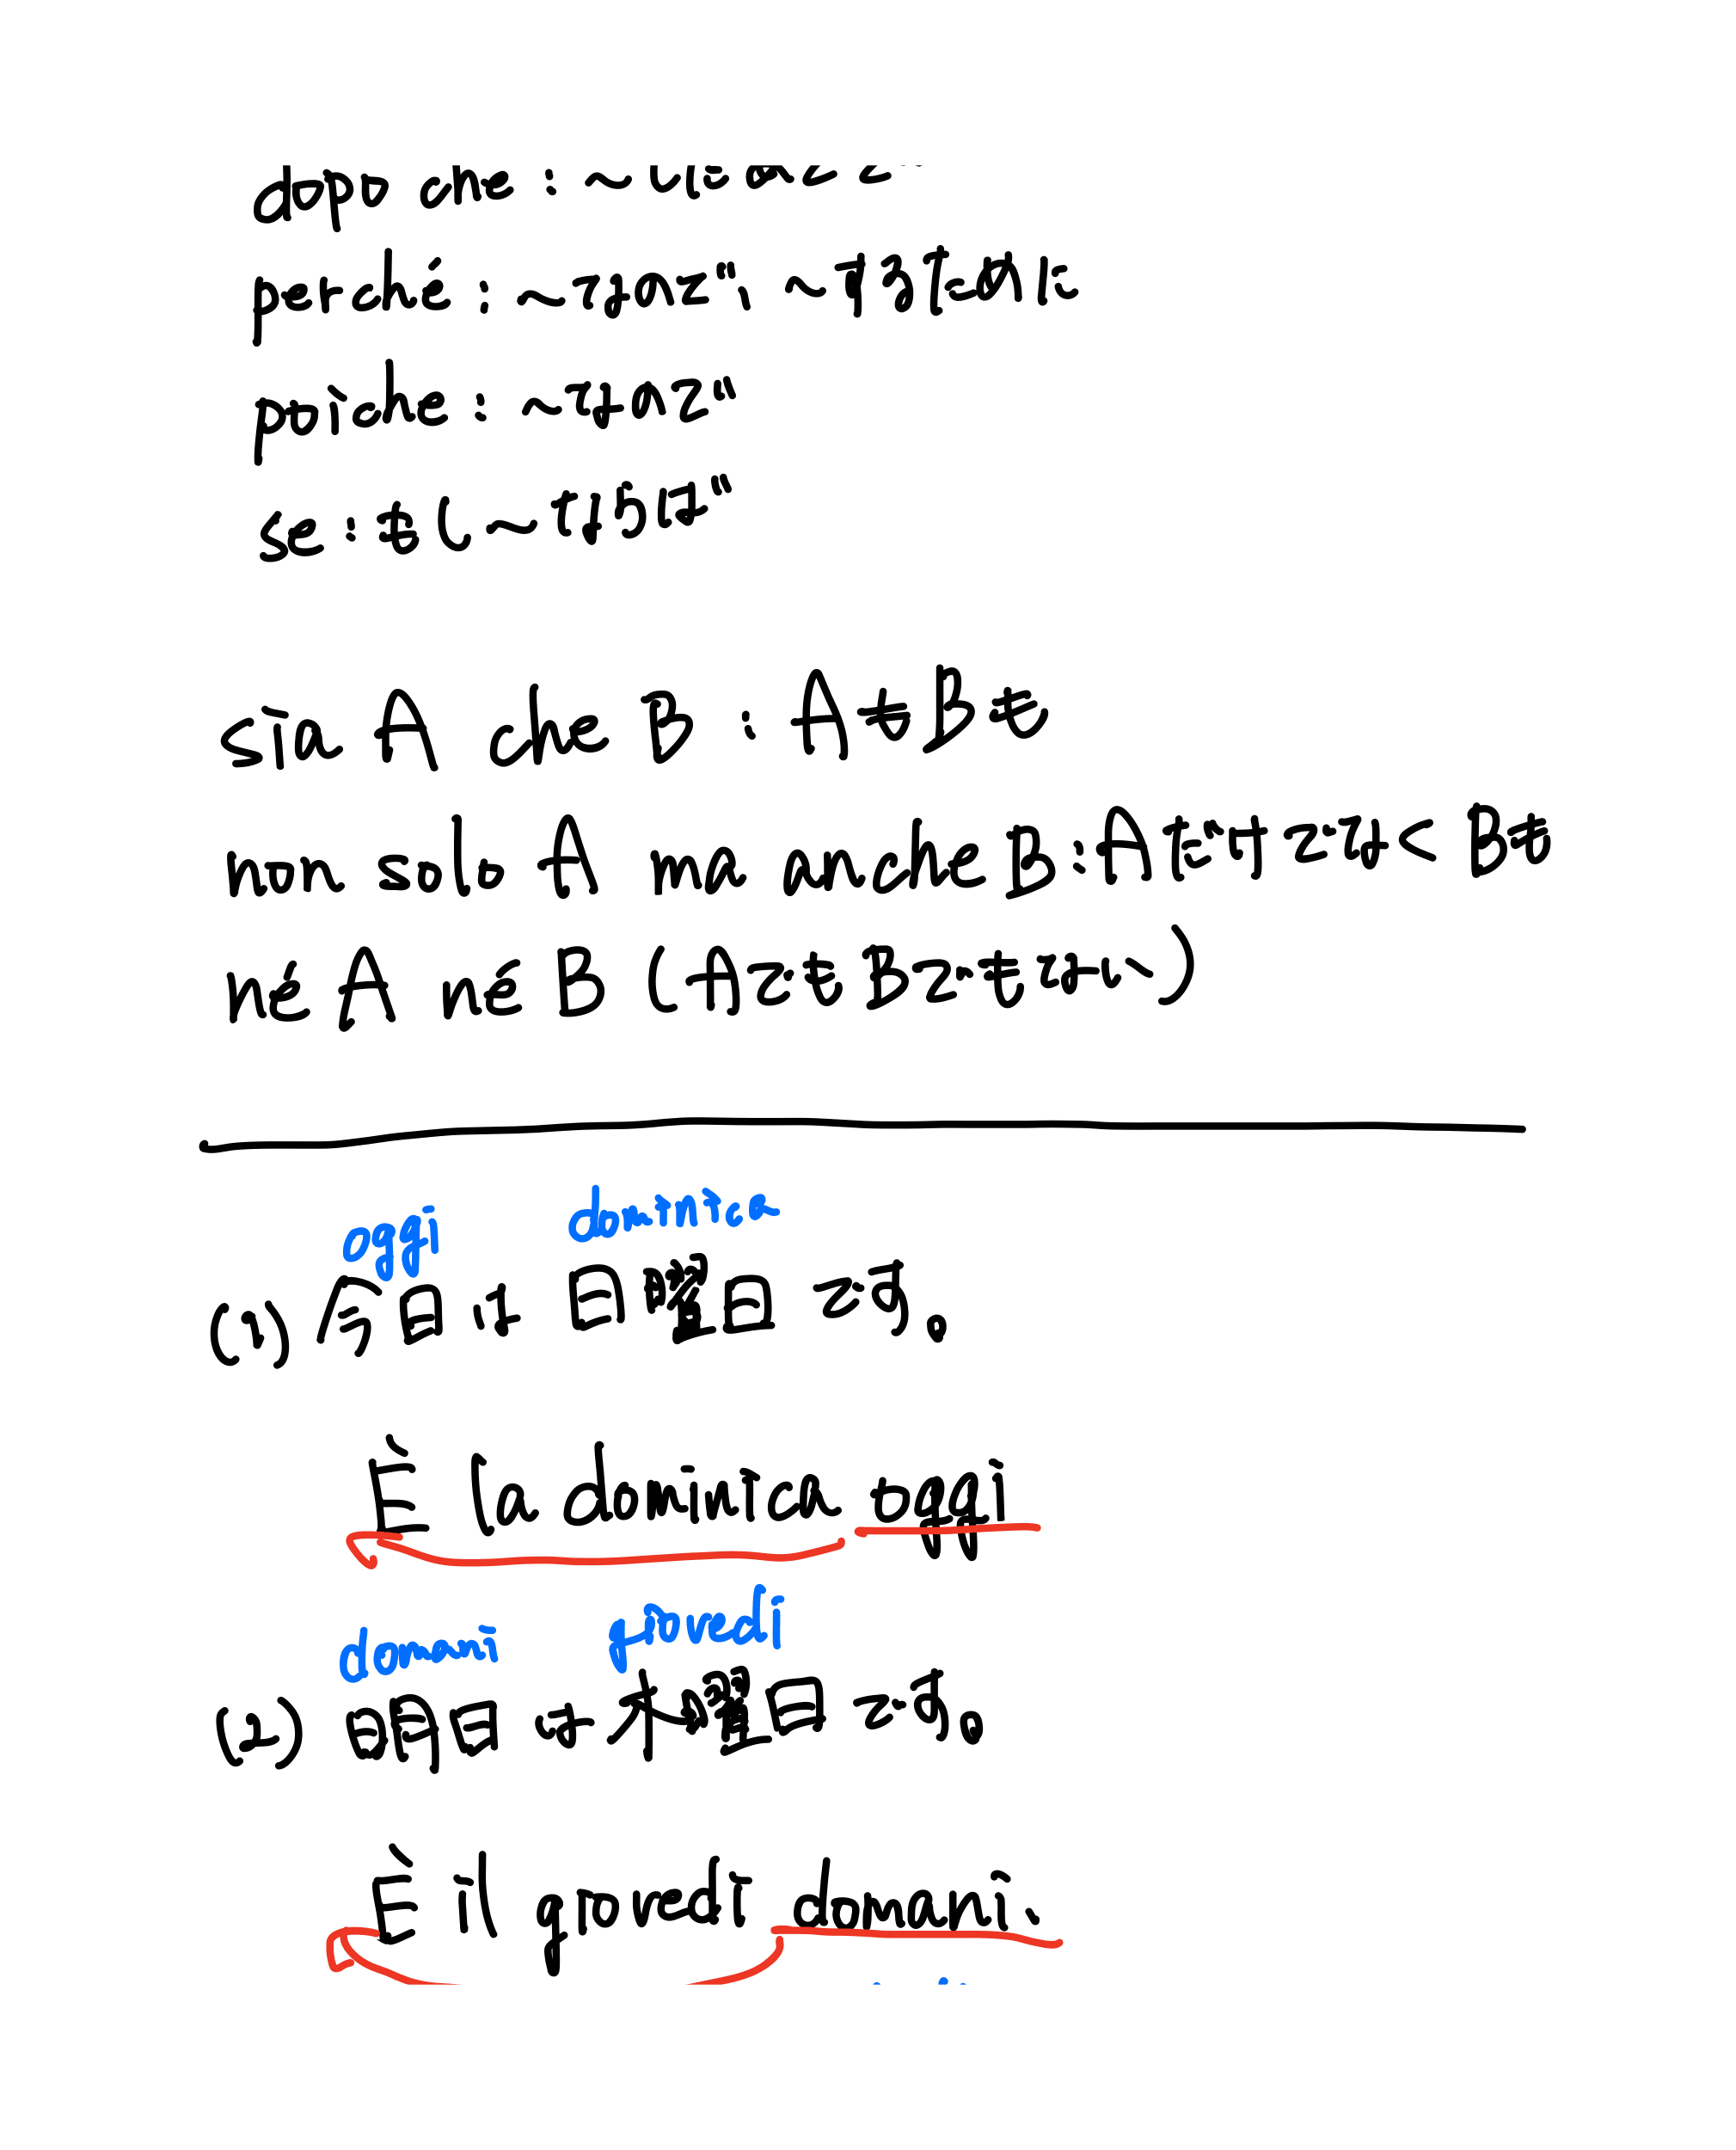 dopo che : ~
perché : ~なので、~するために
poiche : ~なので
se : もし~ならば
sia A che B : AもBも
non solo A ma anche B : AだけでなくBも
né A né B (AでもBでもない)
oggi dominica
(1) 今日は日曜日です。
È la dominica oggi
domani giovedi
(2) 明日は木曜日です。
È il giovedi domani.